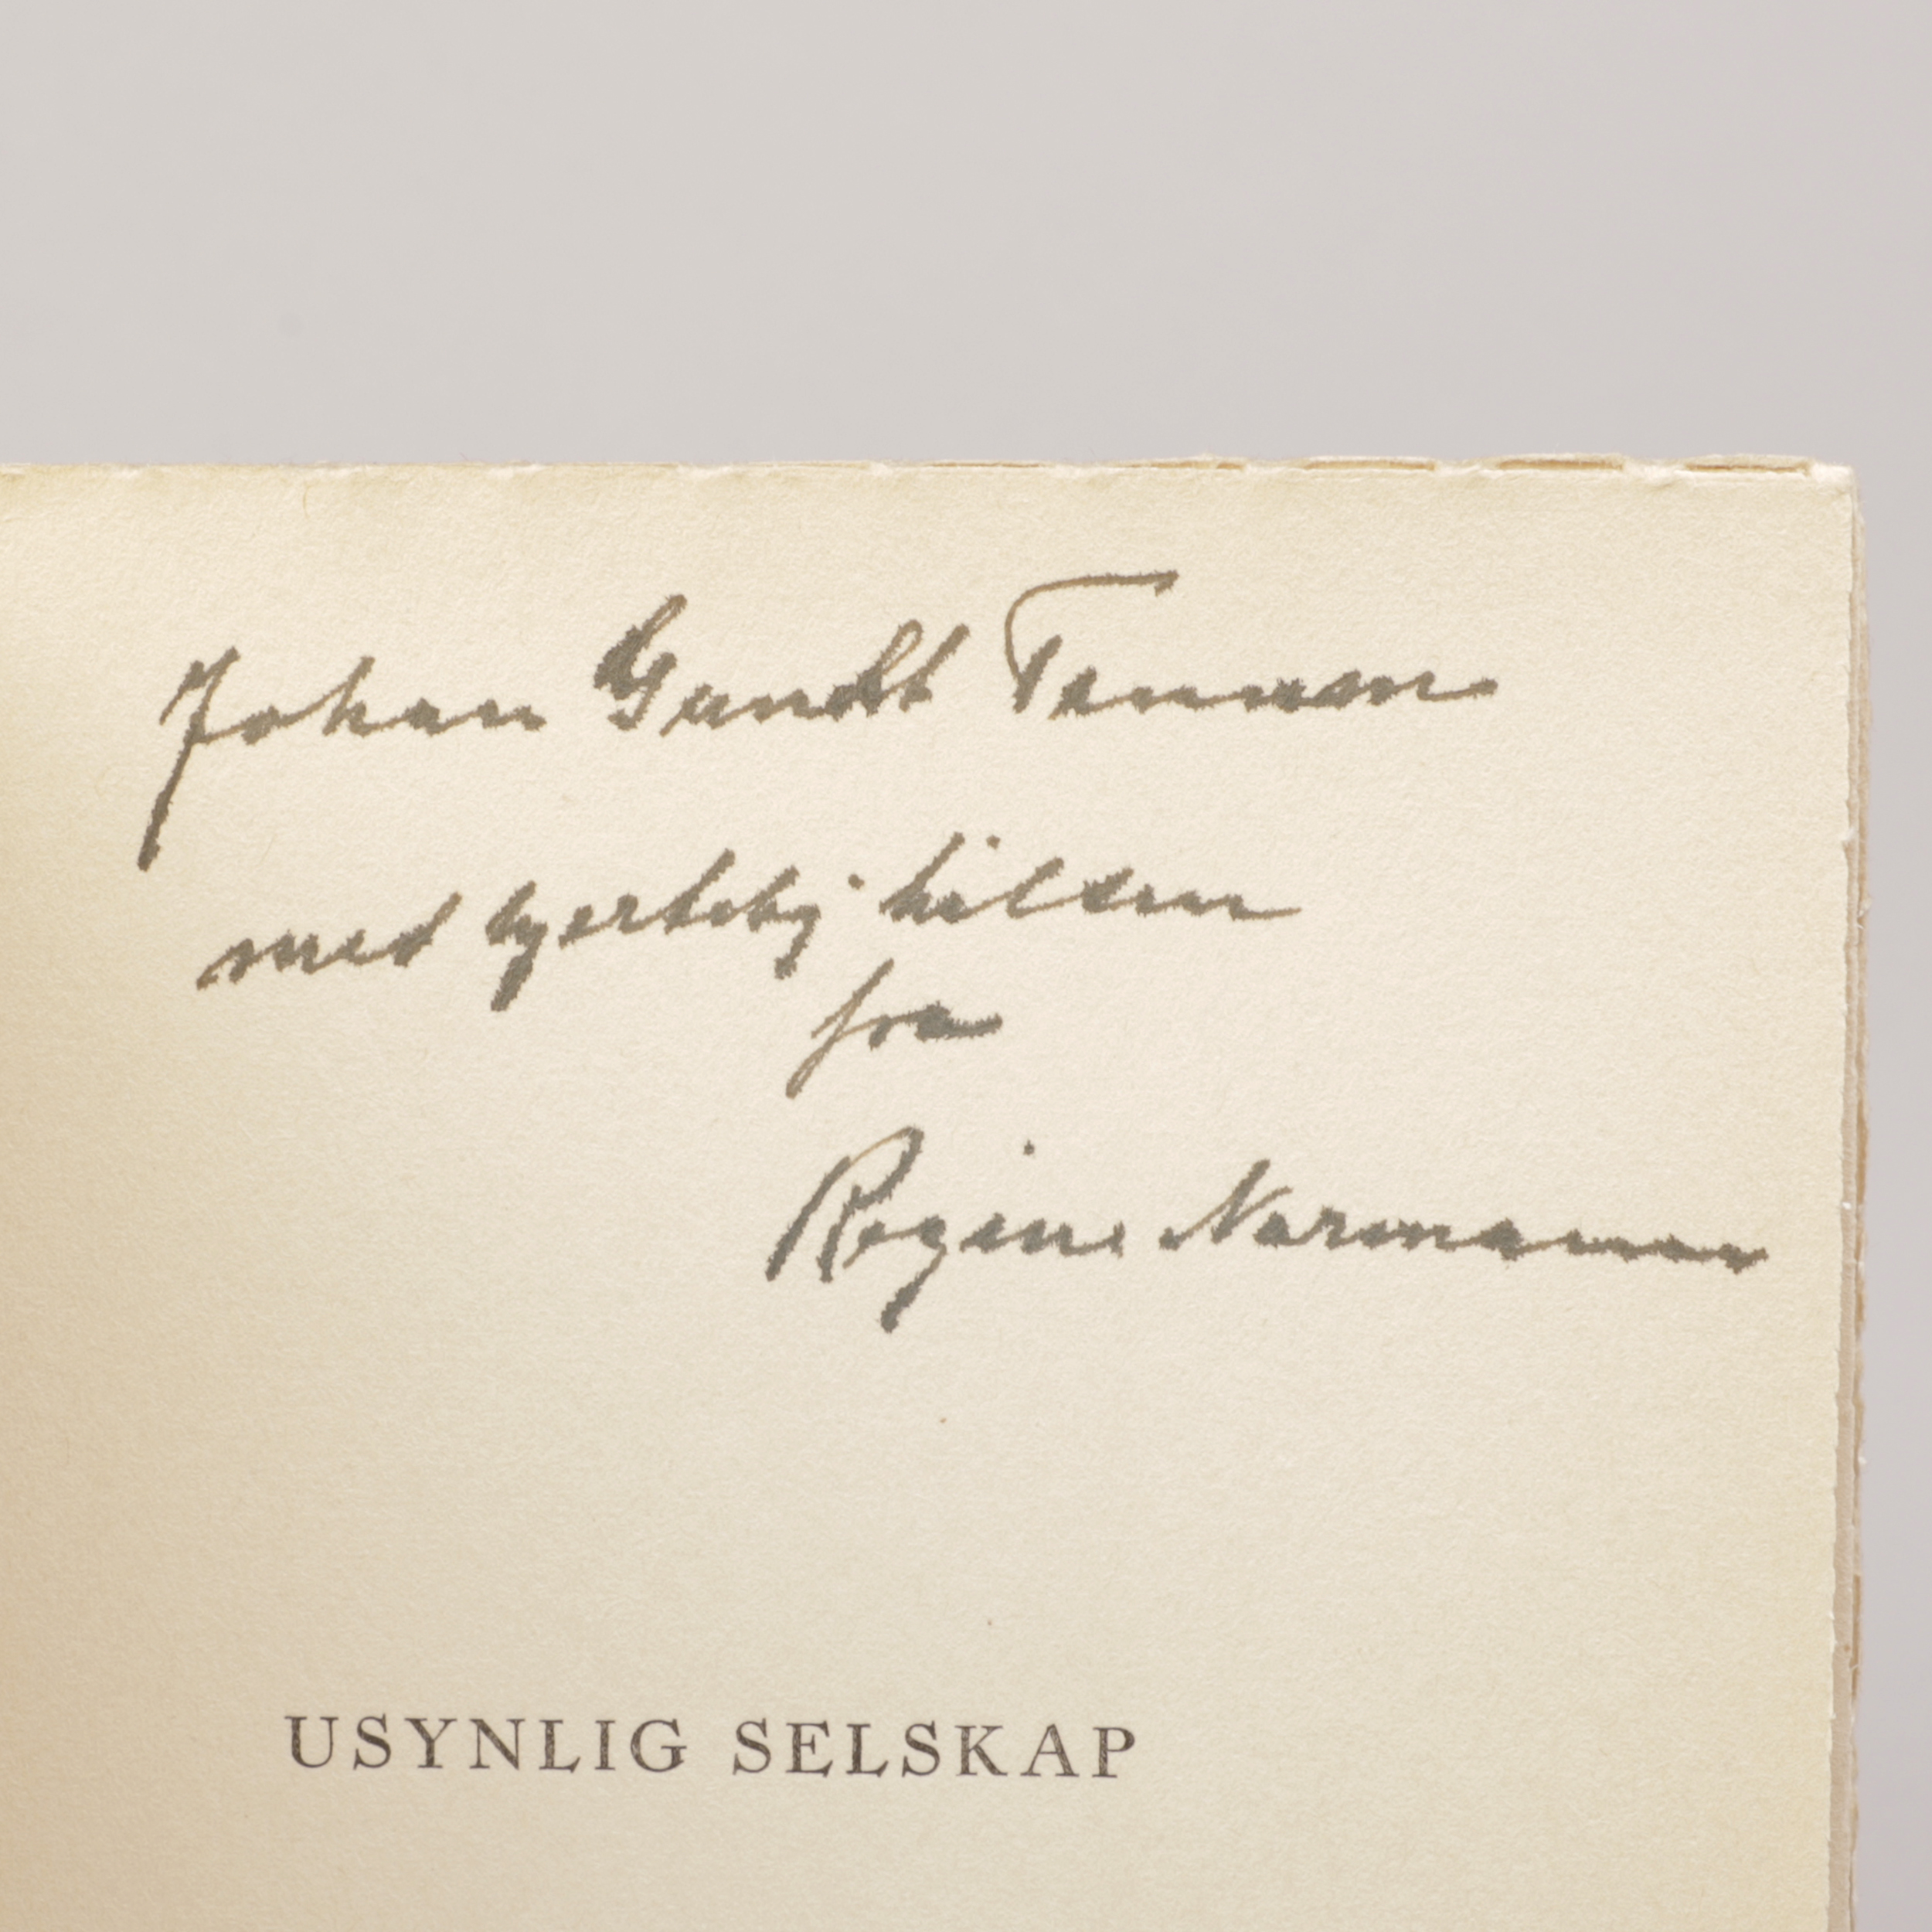 Johan Gundt Tenumm
med hjertelig hilsen
fra
Regine Normann
USYNLIG SELSKAP